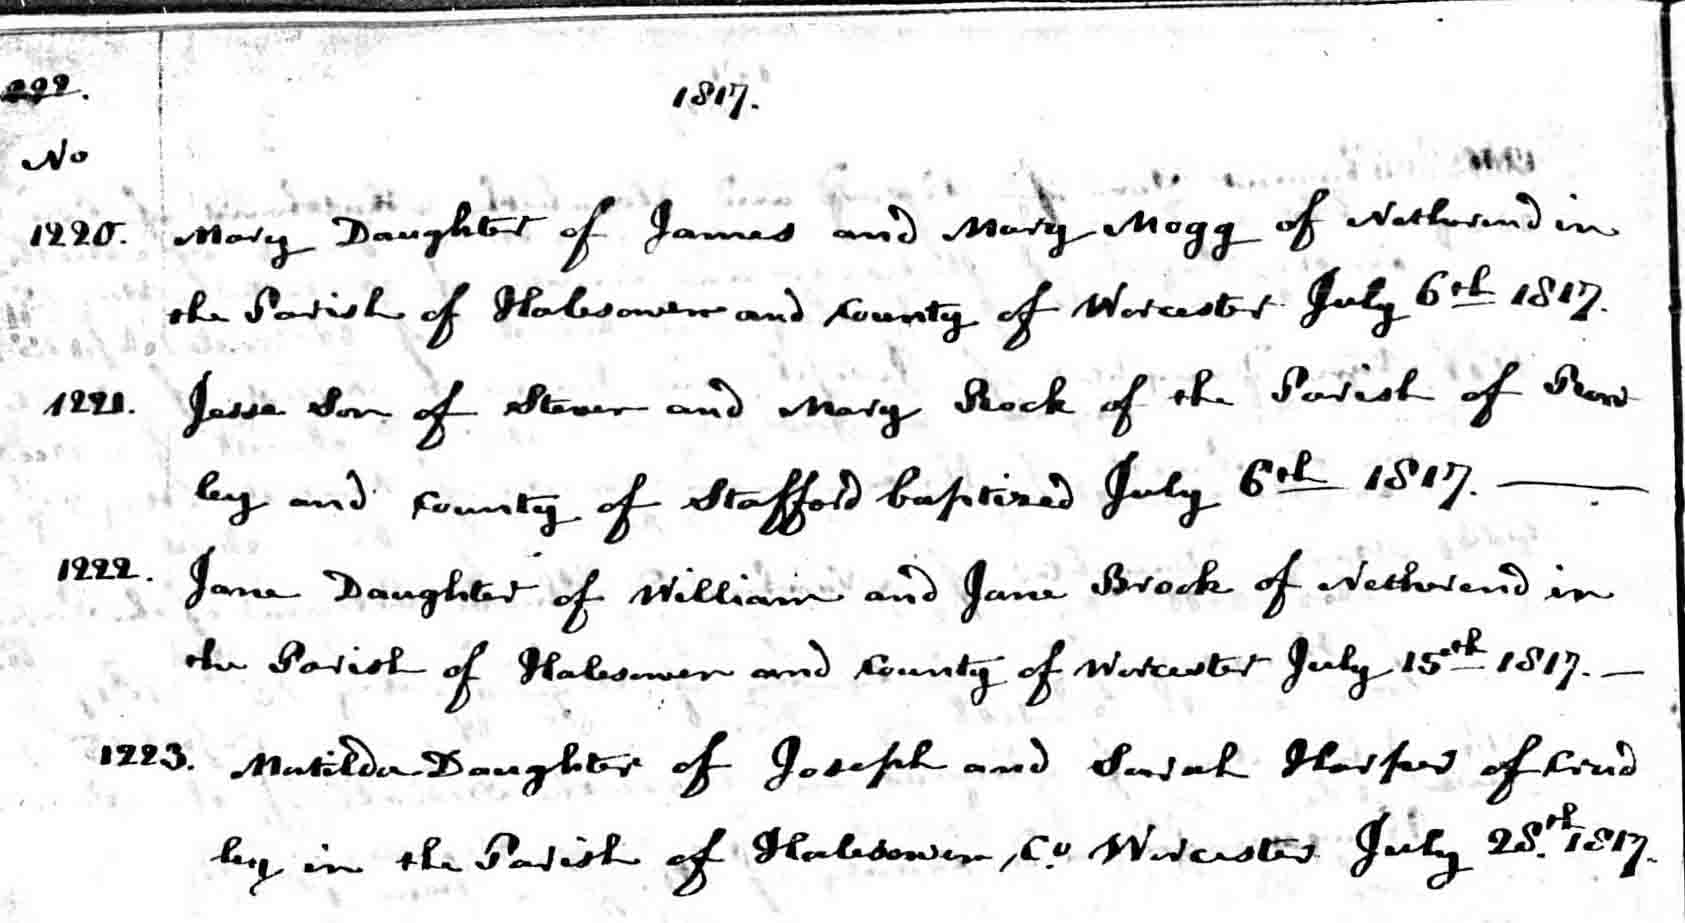 292.
1817.
No
1220. Mary Daughter of James and Mary Mogg of Netherend in
the Parish of Halesowen and County of Worcester July 6th 1817.
1221. Jesse Son of Steven and Mary Rock of the Parish of Row
ley and County of Stafford baptized July 6th 1817.
1222. Jane Daughter of William and Jane Brook of Netherend in
the Parish of Halesowen and County of Worcester July 15th 1817.
1223. Matilda Daughter of Joseph and Sarah Harper of Crad
ley in the Parish of Halesowen, Co Worcester July 28.th 1817.